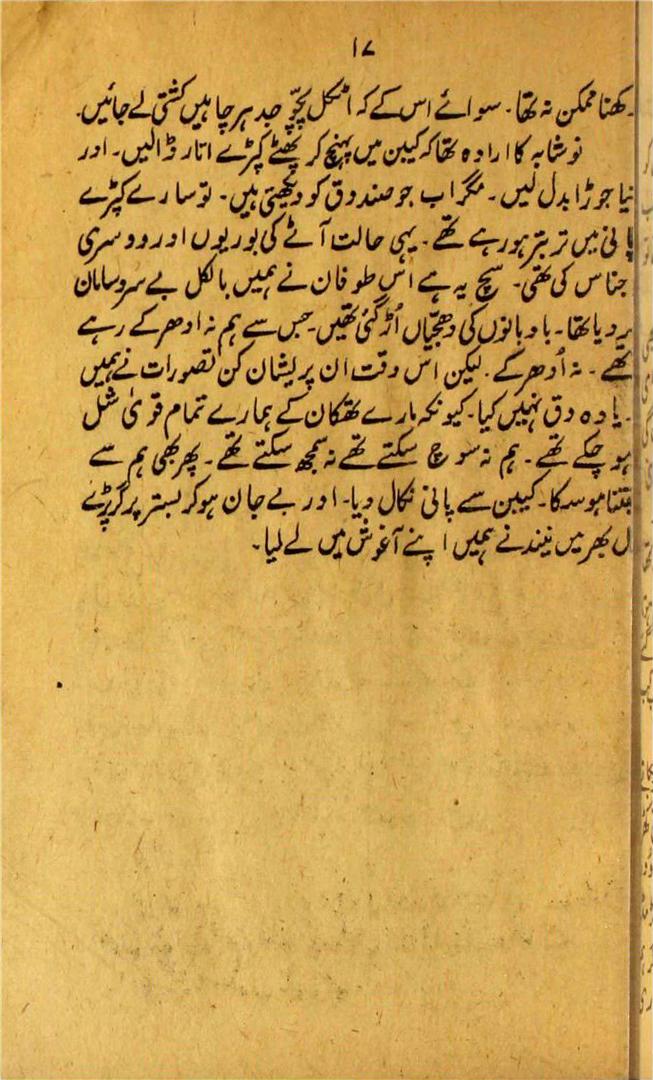 ۱۷
رکھنا ممکن نہ تھا۔ سوائے اس کے کہ اٹکل پچّو جدہر چاہیں کشتی لے جائیں۔
نوشابہ کا ارادہ تھا کہ کیبن میں پہنچ کر پھٹے کپڑے اتار ڈالیں۔ اور
نیا جوڑا بدل لیں۔ مگر اب جو صندوق کو دیکھتی ہیں۔ تو سارے کپڑے
پانی میں تر بتر ہو رہے تھے۔ یہی حالت آٹے کی بوریوں اور دوسری
جناس کی تھی۔ سچ یہ ہے اس طوفان نے ہمیں بالکل بے سروسامان
دیا تھا۔ بادبانوں کی دھجیّاں اُڑ گئی تھیں۔ جس سے ہم نہ ادھر کے رہے
تھے۔ نہ اُدھر کے۔ لیکن اس وقت ان پریشان کن تصورات نے ہمیں
یادہ دق نہیں کیا۔ کیونکہ مارے تھکان کے ہمارے تمام قویٰ شل
ہو چکے تھے۔ ہم نہ سوچ سکتے تھے نہ سمجھ سکتے تھے۔ پھر بھی ہم سے
جتنا ہو سکا۔ کیبن سے پانی نکال دیا۔ اور بے جان ہو کر بستر پر گر پڑے
ل بھر میں نیند نے ہمیں اپنے آغوش میں لے لیا۔